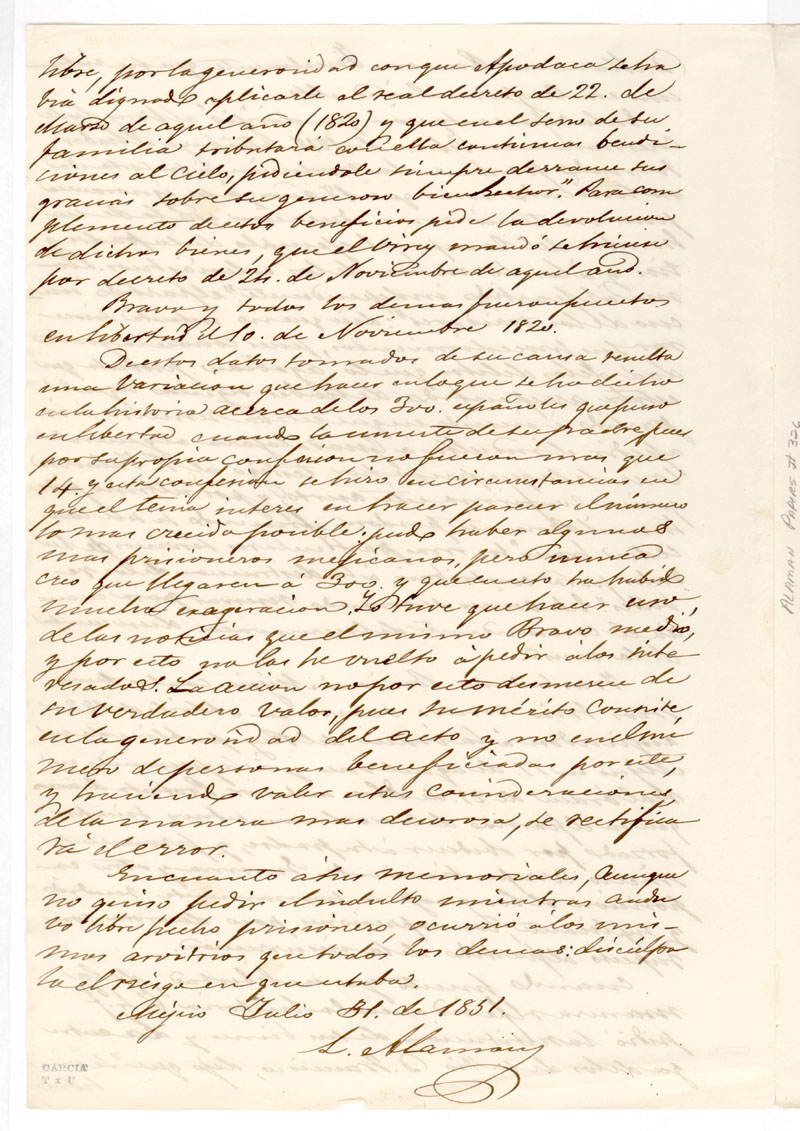 libre, por la generosidad con que Apodaca se ha
bia dignado aplicarle el real decreto de 22. de
Marzo de aquel año (1820) y que en el seno de su
familia tributará con ella continuas bendi-
ciones al Cielo, pidiendole siempre derrame sus
gracias sobre su generoso bienhechor." Para com
plemento de estos beneficios pide la devolucion
de dichos bienes, que el Virey mandó se hiciese
por decreto de 24. de Noviembre de aquel año.
Bravo y todos los demas fueron puestos
en libertad el 10. de Noviembre 1820.
De estos datos tomados de su causa resulta
una variacion que hacer en lo que se ha dicho
en la historia acerca de los 300. españoles que puso
en libertad cuando la muerte de su padre, pues
por su propia confesion no fueron mas que
14. y esta confesion se hizo en circunstancias en
que el tenia interes en hacer parecer el número
lo mas crecido posible: pudo haber algunos
mas prisioneros mejicanos, pero nunca
creo que llegasen á 300. y que en esto ha habido
mucha exageracion. Yo tuve que hacer uso
de las noticias que el mismo Bravo me dió,
y por esto no las he vuelto á pedir á los inte-
resados. La accion no por esto desmerece de
su verdadero valor, pues su mérito consiste
en la generosidad del acto y no en el nú
mero de personas beneficiadas por este,
y haciendo valer estas consideraciones,
de la manera mas decorosa, se rectifica
rá el error.
En cuanto á sus memoriales, aunque
no quiso pedir el indulto mientras andu
vo libre, hecho prisionero, ocurrió á los mis-
mos arvitrios que todos los demas: disculpa
la el riesgo en que estaba.
Mejico Julio 31. de 1851.
L. Alaman
GARCIA
T x U
ALAMAN PAPERS # 326